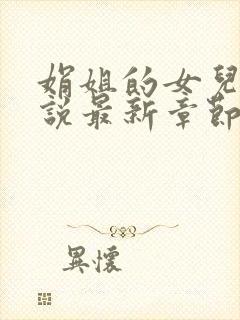 娟姐的女兒
說最新章節
異懷